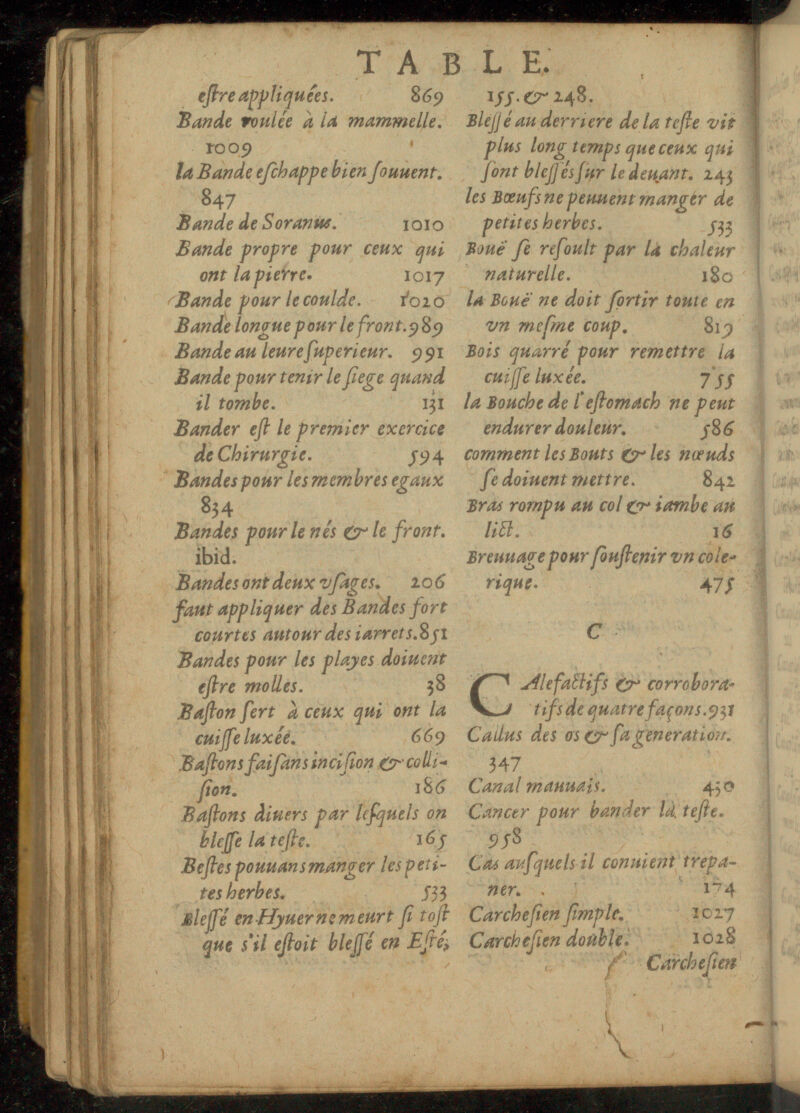 TABLE.
estre appliquées. 869
Bande roulée à la mammelle.
1009
la Bande eschappe bien souuent.
847
Bande de Soranus. 1010
Bande propre pour ceux qui
ont la pierre. 1017
Bande pour le coulde. 1020
Bande longue pour le front. 989
Bande au leure superieur. 991
Bande pour tenir le siege quand
il tombe. 131
Bander est le premier exercice
de Chirurgie. 594
Bandes pour les membres egaux
834
Bandes pour le nés & le front.
ibid.
Bandes ont deux vsages. 206
faut appliquer des Bandes fort
courtes autour des iarrets. 851
Bandes pour les playes doiuent
estre molles. 38
Baston sert à ceux qui ont la
cuisse luxée. 669
Bastons faisans incision & colli-
sion. 186
Bastons diuers par lesquels on
blesse la teste. 165
Bestes pouuans manger les peti-
tes herbes. 533
Blessé en Hyuer ne meurt si tost
que s'il estoit blessé en Esté,
155. & 248.
Blessé au derriere de la teste vit
plus long temps que ceux qui
sont blessés sur le deuant. 243
les Bœufs ne peuuent manger de
petites herbes. 533
Bouë se resoult par la chaleur
naturelle. 180
la Bouë ne doit sortir toute en
vn mesme coup. 819
Bois quarré pour remettre la
cuisse luxée. 755
la Bouche de l'estomach ne peut
endurer douleur. 586
comment les Bouts & les nœuds
se doiuent mettre. 842
Bras rompu au col & iambe au
lict. 16
Breuuage pour soustenir vn cole-
rique. 475
C
CAlefactifs & corrobora-
tifs de quatre façons. 931
Callus des os & sa generation.
347
Canal mauuais. 430
Cancer pour bander la teste.
958
Cas ausquels il conuient trepa-
ner. 174
Carchesien simple. 1027
Carchesien double. 1028
f Carchesien